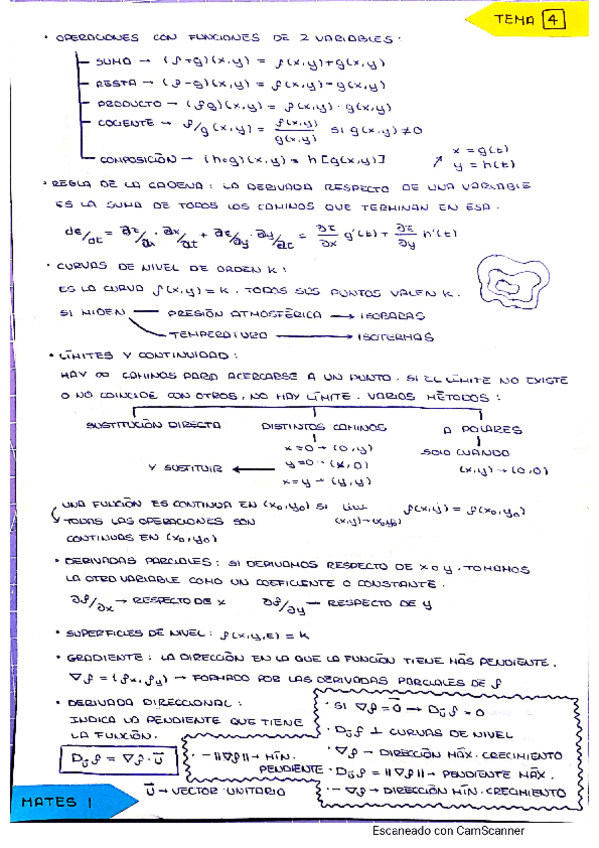 TEMA 4
· OPERACIONES CON FUNCIONES DE 2 VARIABLES:
SUMA → (f+g)(x,y) = f(x,y)+g(x,y)
RESTA → (f-g)(x,y) = f(x,y)-g(x,y)
PRODUCTO → (fg)(x,y) = f(x,y) · g(x,y)
COCIENTE → f/g (x,y) = f(x,y)/g(x,y) si g(x,y) ≠ 0
COMPOSICIÓN → (h∘g)(x,y) = h[g(x,y)]
x = g(t)
y = h(t)
· REGLA DE LA CADENA: LA DERIVADA RESPECTO DE UNA VARIABLE
ES LA SUMA DE TODOS LOS CAMINOS QUE TERMINAN EN ESA.
dz/dt = ∂z/∂x · ∂x/∂t + ∂z/∂y · ∂y/∂t = ∂z/∂x g'(t) + ∂z/∂y h'(t)
· CURVAS DE NIVEL DE ORDEN K:
ES LA CURVA f(x,y) = K. TODOS SUS PUNTOS VALEN K.
SI MIDEN — PRESIÓN ATMOSFÉRICA → ISOBARAS
TEMPERATURA → ISOTERMAS
· LÍMITES Y CONTINUIDAD:
HAY ∞ CAMINOS PARA ACERCARSE A UN PUNTO. SI EL LÍMITE NO EXISTE
O NO COINCIDE CON OTROS, NO HAY LÍMITE. VARIOS MÉTODOS:
SUSTITUCIÓN DIRECTA DISTINTOS CAMINOS A POLARES
x=0 → (0,y) SOLO CUANDO
Y SUSTITUIR ← y=0 → (x,0) (x,y) → (0,0)
x=y → (y,y)
UNA FUNCIÓN ES CONTINUA EN (x₀,y₀) SI lim f(x,y) = f(x₀,y₀)
TODAS LAS OPERACIONES SON (x,y)→(x₀,y₀)
CONTINUAS EN (x₀,y₀)
· DERIVADAS PARCIALES: SI DERIVAMOS RESPECTO DE X O Y, TOMAMOS
LA OTRA VARIABLE COMO UN COEFICIENTE O CONSTANTE.
∂f/∂x → RESPECTO DE X ∂f/∂y — RESPECTO DE Y
· SUPERFICIES DE NIVEL: f(x,y,z) = K
· GRADIENTE: LA DIRECCIÓN EN LA QUE LA FUNCIÓN TIENE MÁS PENDIENTE.
∇f = (fx, fy) → FORMADO POR LAS DERIVADAS PARCIALES DE f
· DERIVADA DIRECCIONAL:
INDICA LA PENDIENTE QUE TIENE
LA FUNCIÓN.
Dūf = ∇f · ū
ū → VECTOR UNITARIO
· SI ∇f = 0 → Dūf = 0
· Dūf ⊥ CURVAS DE NIVEL
· ∇f → DIRECCIÓN MÁX. CRECIMIENTO
· -||∇f|| → MÍN. PENDIENTE
· Dūf = ||∇f|| → PENDIENTE MÁX.
· -∇f → DIRECCIÓN MÍN. CRECIMIENTO
MATES 1
Escaneado con CamScanner